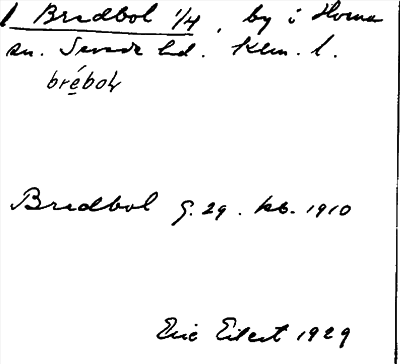 1 Bredbol 1/4, by i Horns
sn. Sevede hd. Klm. l.
brébol
Bredbol G. 29. kb. 1910
Eric Eilert 1929